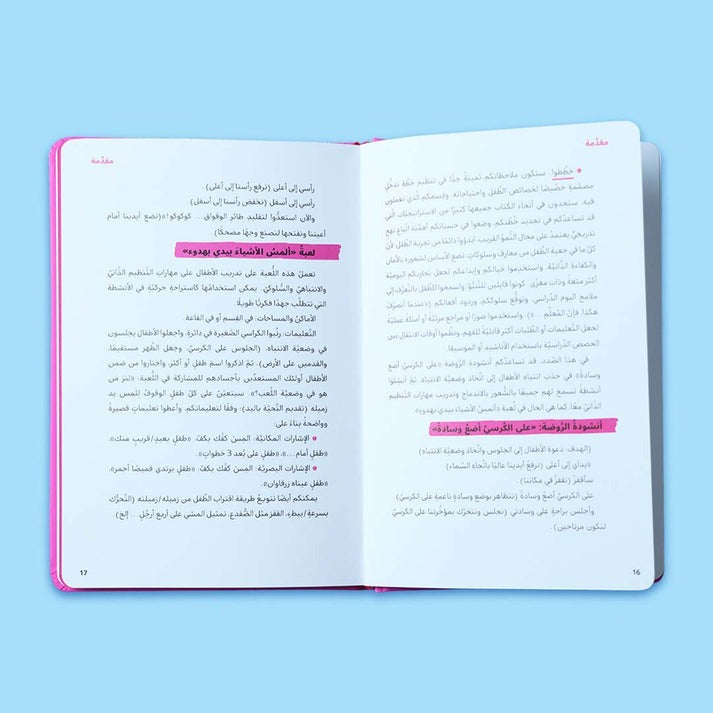 مقدّمة
• خطّطوا: ستكون ملاحظاتكم ثمينةً جدًّا في تنظيم خطّة تدخُّل
مصمّمةٍ خصّيصًا لخصائص الطّفل واحتياجاته، وقسمكم الّذي تعملون
فيه. ستجدون في أنحاء الكتاب جميعها كثيرًا من الاستراتيجيّات الّتي
قد تساعدكم في تحديد خُططكم. وضعوا في حسبانكم أهمّيّة اتّباع نهجٍ
تدريجيٍّ يعتمد على مجال النُّموّ القريب. ابدؤوا دائمًا من تجربة الطّفل، فإنّ
كلًّا ما في جعبته من معارف وسلوكاتٍ، تضع الأساس لشعوره بالأمان
والكفاءة الذّاتيّة. واستخدموا خيالكم وإبداعكم لجعل تجاربكم اليوميّة
أكثر متعةً وذات مغزًى. كونوا قابلين للتّنبُّؤ، واسمحوا للطّفل بالتّعرُّف إلى
ملامح اليوم الدّراسيّ، وتوقُّع سلوككم، وردود أفعالكم («عندما أتصرّفُ
هكذا، فإنّ المُعلّم ...»). واستخدموا صورًا أو مراجع مرئيّة أو أمثلة عمليّة
لجعل التّعليمات أو الطّلبات أكثر قابليّة للفهم، ونظّموا أوقات الانتقال بين
الحصص الدّراسيّة باستخدام الأناشيد أو الموسيقا.
في هذا الصّدد، قد تساعدكم أنشودة الرّوضة «على الكرسيّ أضع
وسادة» في جذب انتباه الأطفال إلى اتّخاذ وضعيّة الانتباه. ثمّ أنشئوا
أنشطةً تسمح لهم جميعًا بالشُّعور بالاندماج وتدريب مهارات التّنظيم
الذّاتيّ معًا، كما هي الحال في لعبة «ألمسُ الأشياءَ بيدي بهدوء»
أنشودةُ الرَّوضة: «على الكُرسيِّ أضعُ وسادةً»
(الهدف: دعوة الأطفال إلى الجلوس واتّخاذ وضعيّة الانتباه)
«يداي إلى أعلى (نرفعُ أيدينا عاليًا باتّجاه السّماء)
سأقفزُ (نقفزُ في مكاننا)
على الكرسيّ أضعُ وسادةً (نتظاهر بوضع وسادةٍ ناعمةٍ على الكرسيّ)
وأجلس براحةٍ على وسادتي (نجلس ونتحرّك بمؤخّرتنا على الكرسيّ
لنكون مرتاحين).
16
مقدّمة
رأسي إلى أعلى (نرفع رأسنا إلى أعلى)
رأسي إلى أسفل (نخفض رأسنا إلى أسفل)
والآن استعدّوا لتقليد طائر الوقواق... كوكوكو!» (نضع أيدينا أمام
أعيننا ونفتحها لنصنع وجهًا مضحكًا)
لعبةُ «ألمسُ الأشياءَ بيدي بهدوء»
تعملُ هذه اللُّعبة على تدريب الأطفال على مهارات التّنظيم الذّاتيّ
والانتباهيّ والسُّلوكيّ. يمكن استخدامُها كاستراحةٍ حركيّةٍ في الأنشطة
التي تتطلّب جهدًا فكريًّا طويلًا.
الأماكنُ والمساحات: في القِسم أو في القاعة
التّعليمات: رتّبوا الكراسي الصّغيرة في دائرةٍ، واجعلوا الأطفال يجلسون
في وضعيّة الانتباه. (الجلوس على الكرسيّ، وجعل الظّهر مستقيمًا،
والقدمين على الأرض)، ثمّ اذكروا اسمَ طفلٍ أو أكثر، واختاروا من ضمن
الأطفال أولئك المستعدّين بأجسادهم للمشاركة في اللُّعبة: «لنرَ من
هو في وضعيّة اللّعب؟» سيتعيّن على كلّ طفلٍ الوقوفُ للمس يد
زميله (تقديم التّحيّة باليد)؛ وفقًا لتعليماتكم. وأعطوا تعليماتٍ قصيرةً
وواضحةً بناءً على:
• الإشارات المكانيّة: المِسن كفُّكَ بكفّ: «طفلٍ بعيدٍ/قريبٍ منك»،
«طفلٍ أمام...»، «طفلٍ على بُعد 3 خطواتٍ».
• الإشارات البصريّة: المِسن كفُّكَ بكفّ: «طفلٍ يرتدي قميصًا أحمر»،
«طفلٍ عيناه زرقاوان».
يمكنكم أيضًا تنويعُ طريقة اقتراب الطّفل من زميله/زميلته (التّحرُّك
بسرعةٍ/ببطءٍ، القفز مثل الضّفدع، تمثيل المشي على أربع أرجُلٍ... إلخ).
17